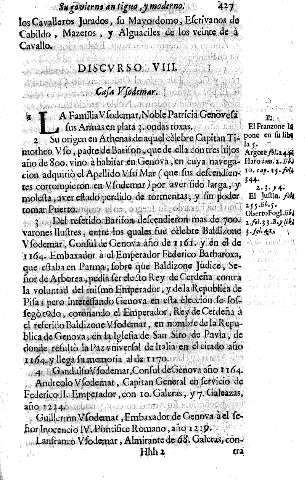 Su govierno antiguo, y moderno. 427
los Cavalleros Jurados, su Mayordomo, Escrivanos de
Cabildo, Mazeros, y Alguaciles de los veinte de à
Cavallo.
DISCVRSO VIII.
Casa Vsodemar.
1 LA Familia Vsodemar, Noble Patricia Genovesa
sus Armas en plata 3. ondas roxas.
2 Su origen en Athenas de aquel célebre Capitan Ti-
motheo Vso, padre de Barison, que de ella con tres hijos
año de 800. vino à habitar en Genova, en cuya navega-
cion adquiriò el Apellido Vsù Mar (que sus descendien-
tes corrompieron en Vsodemar) por aver sido larga, y
molesta, aver estado perdido de tormentas, y sin poder
tomar Puerto.
3 Del referido Barison descendieron mas de 700.
varones Ilustres, entre los quales fue célebre Baldizon
Vsodemar, Consul de Genova año de 1161. y en el de
1164. Embaxador à el Emperador Federico Barbaroxa,
que estaba en Parma, sobre que Baldizone Judice, Se-
ñor de Arborea, pedia ser electo Rey de Cerdeña contra
la voluntad del mismo Emperador, y de la Republica de
Pisa; pero interessando Genova, en esta eleccion se sos-
segò todo, coronando el Emperador, Rey de Cerdeña à
el referido Baldizone Vsodemar, en nombre de la Repu-
blica de Genova, en la Iglesia de San Siro de Pavia, de
donde resultò la Paz vniversal de Italia en el citado año
1164. y llega su memoria al de 1170.
4 Gandulfus Vsodemar, Consul de Genova año 1164.
Andreolo Vsodemar, Capitan General en servicio de
Federico II. Emperador, con 10. Galeras, y 7. Galeazas,
año 1234.
Guillermo Vsodemar, Embaxador de Genova à el se-
ñor Inocencio IV. Pontifice Romano, año 1239.
Lanfranco Vsodemar, Almirante de 68. Galeras, con-
Hhh 2 tra
1.
El Franzone im-
pone en su lib.
la 5.
Argote fol.244.
Haro tom. 2. lib.
10. cap. 25. fol.
544.
2. 3. y 4.
El Justin. fol.
255. lib. 5.
Oberto Fogl. lib.
2. fol. 23. B. lib.
3. fol. 42.